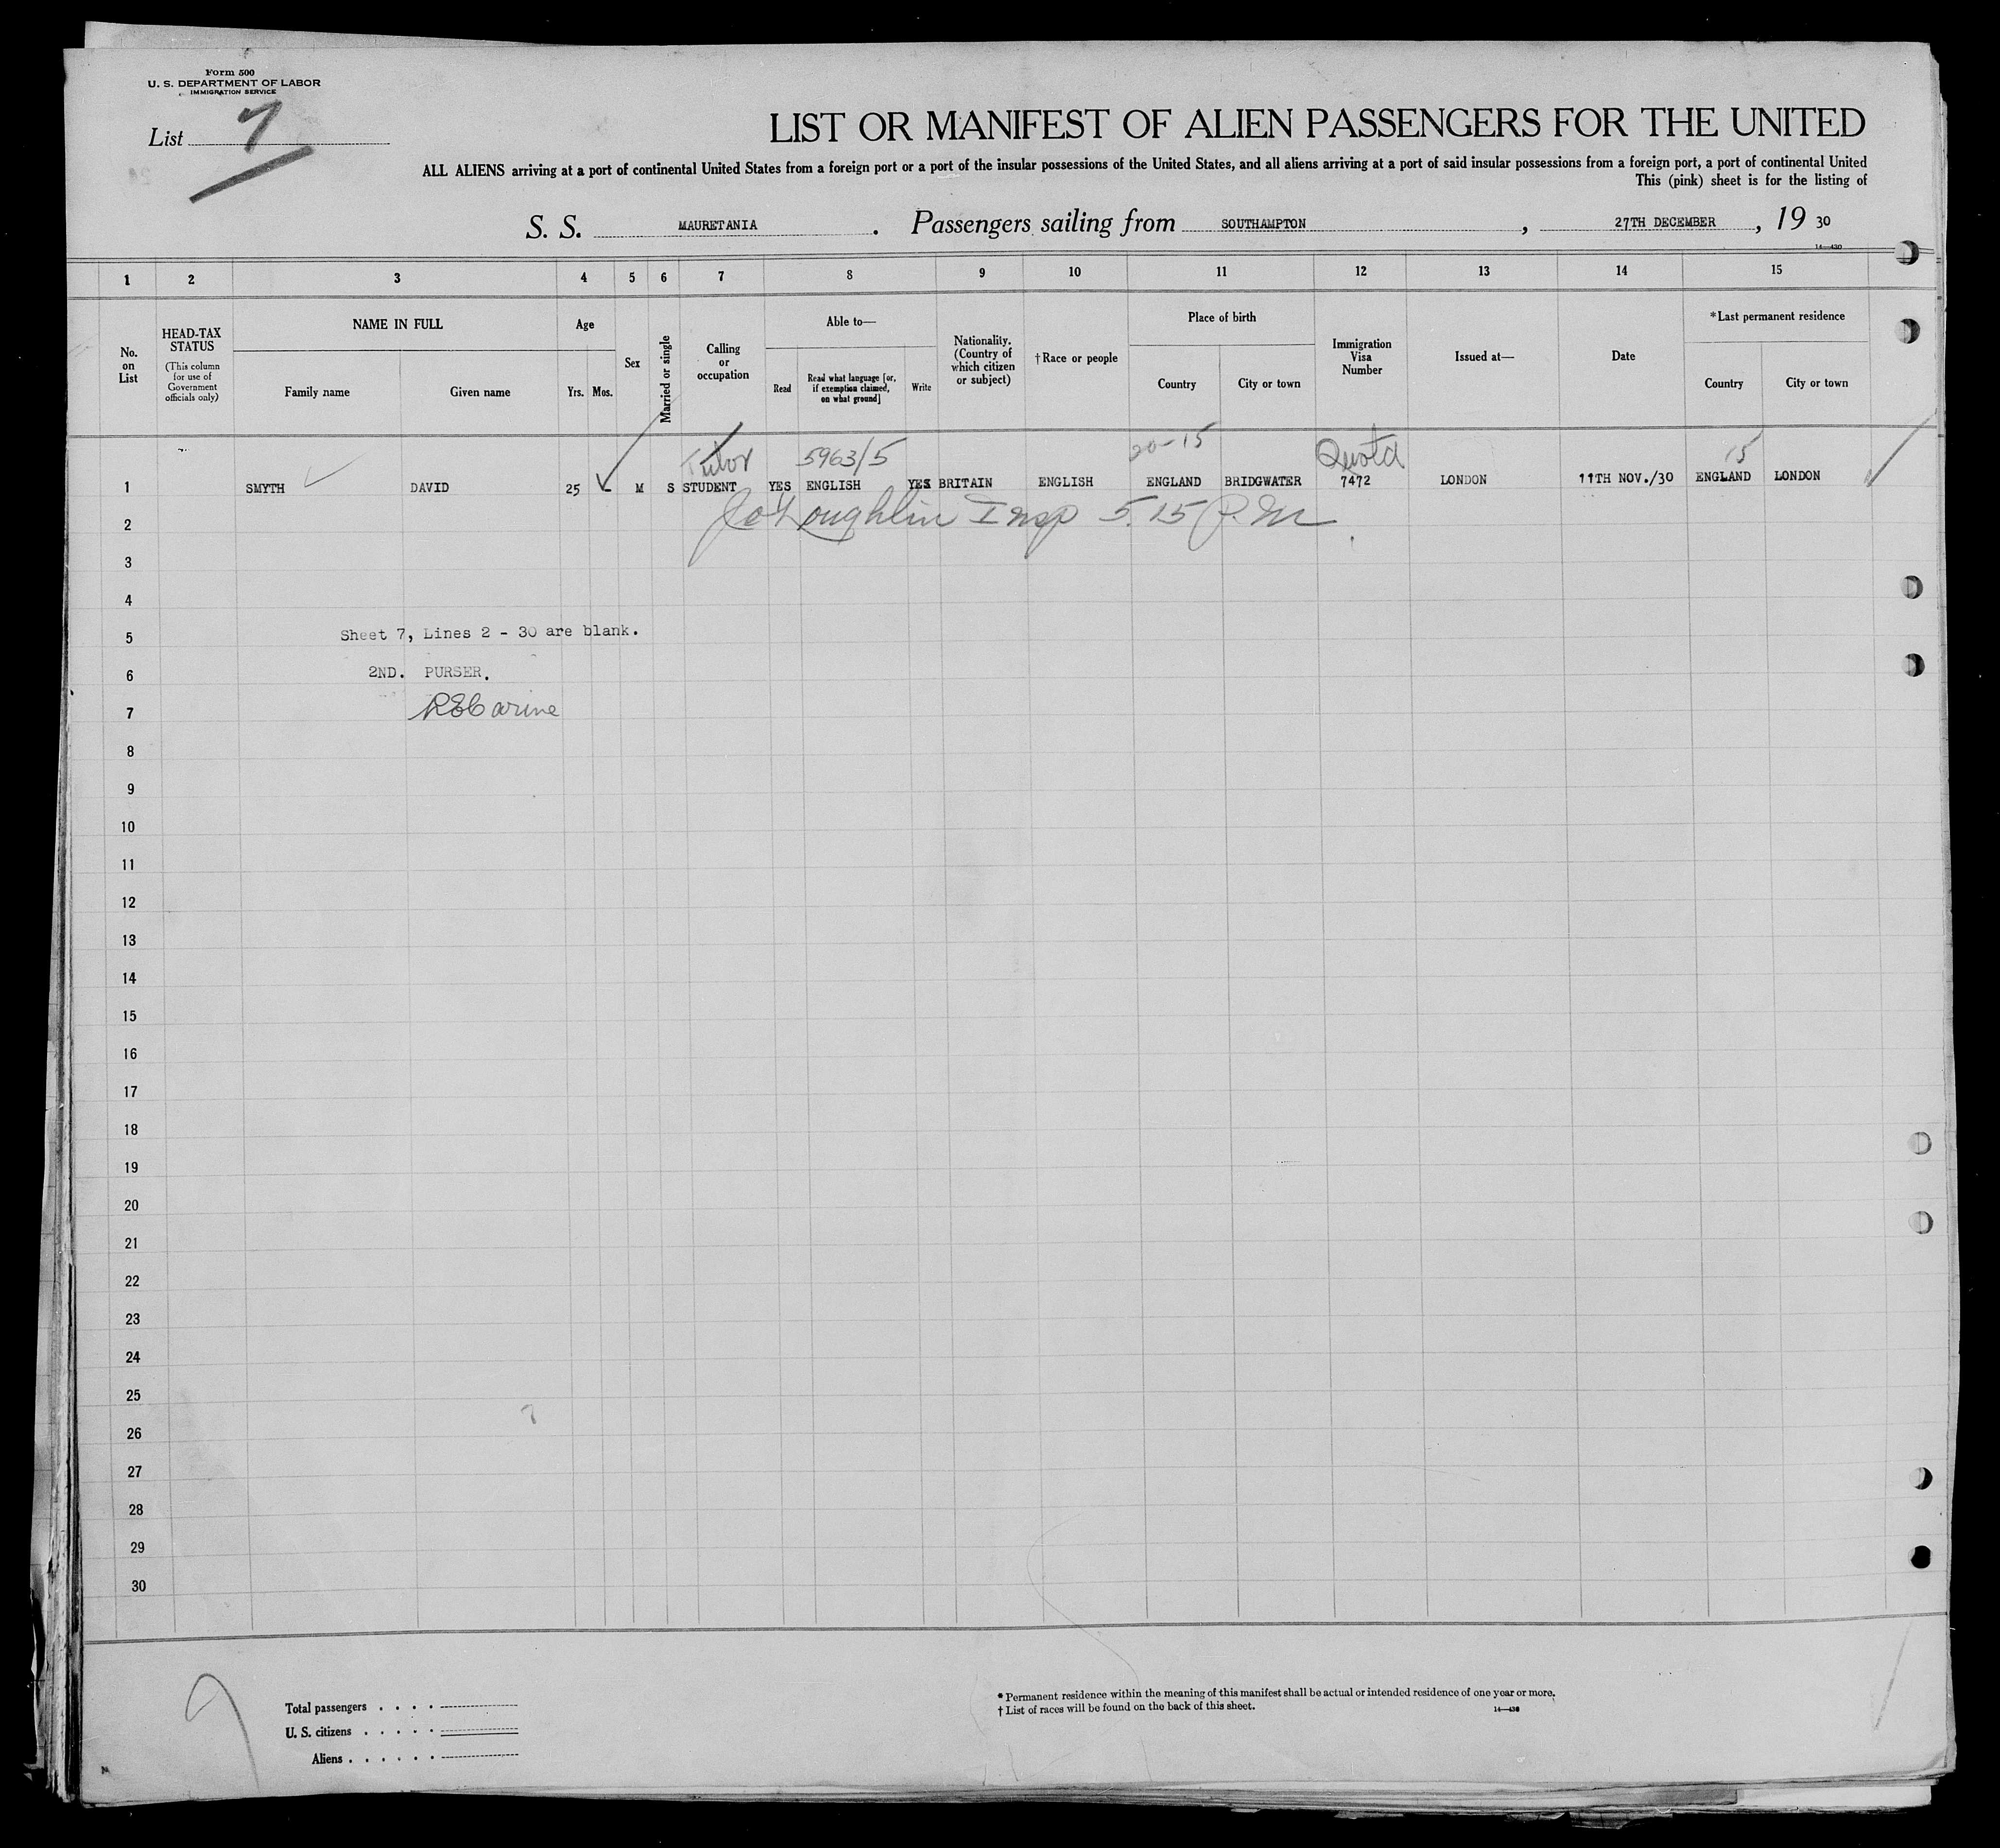 Form 500
U. S. DEPARTMENT OF LABOR
IMMIGRATION SERVICE
List 7
LIST OR MANIFEST OF ALIEN PASSENGERS FOR THE UNITED
ALL ALIENS arriving at a port of continental United States from a foreign port or a port of the insular possessions of the United States, and all aliens arriving at a port of said insular possessions from a foreign port, a port of continental United
This (pink) sheet is for the listing of
S. S. MAURETANIA . Passengers sailing from SOUTHAMPTON , 27TH DECEMBER , 19 30
14—430
1 2 3 4 5 6 7 8 9 10 11 12 13 14 15
No. on List
HEAD-TAX STATUS
(This column for use of Government officials only)
NAME IN FULL
Family name
Given name
Age
Yrs. Mos.
Sex
Married or single
Calling or occupation
Able to—
Read
Read what language [or, if exemption claimed, on what ground]
Write
Nationality. (Country of which citizen or subject)
†Race or people
Place of birth
Country
City or town
Immigration Visa Number
Issued at—
Date
*Last permanent residence
Country
City or town
Tutor 5963/5 20-15 Quota 15
1 SMYTH DAVID 25 M S STUDENT YES ENGLISH YES BRITAIN ENGLISH ENGLAND BRIDGWATER 7472 LONDON 11TH NOV./30 ENGLAND LONDON
2 Insp 5.15 P.M.
3
4
5 Sheet 7, Lines 2 - 30 are blank.
6 2ND. PURSER.
7
8
9
10
11
12
13
14
15
16
17
18
19
20
21
22
23
24
25
26
27
28
29
30
Total passengers
U. S. citizens
Aliens
* Permanent residence within the meaning of this manifest shall be actual or intended residence of one year or more.
† List of races will be found on the back of this sheet.
14—430